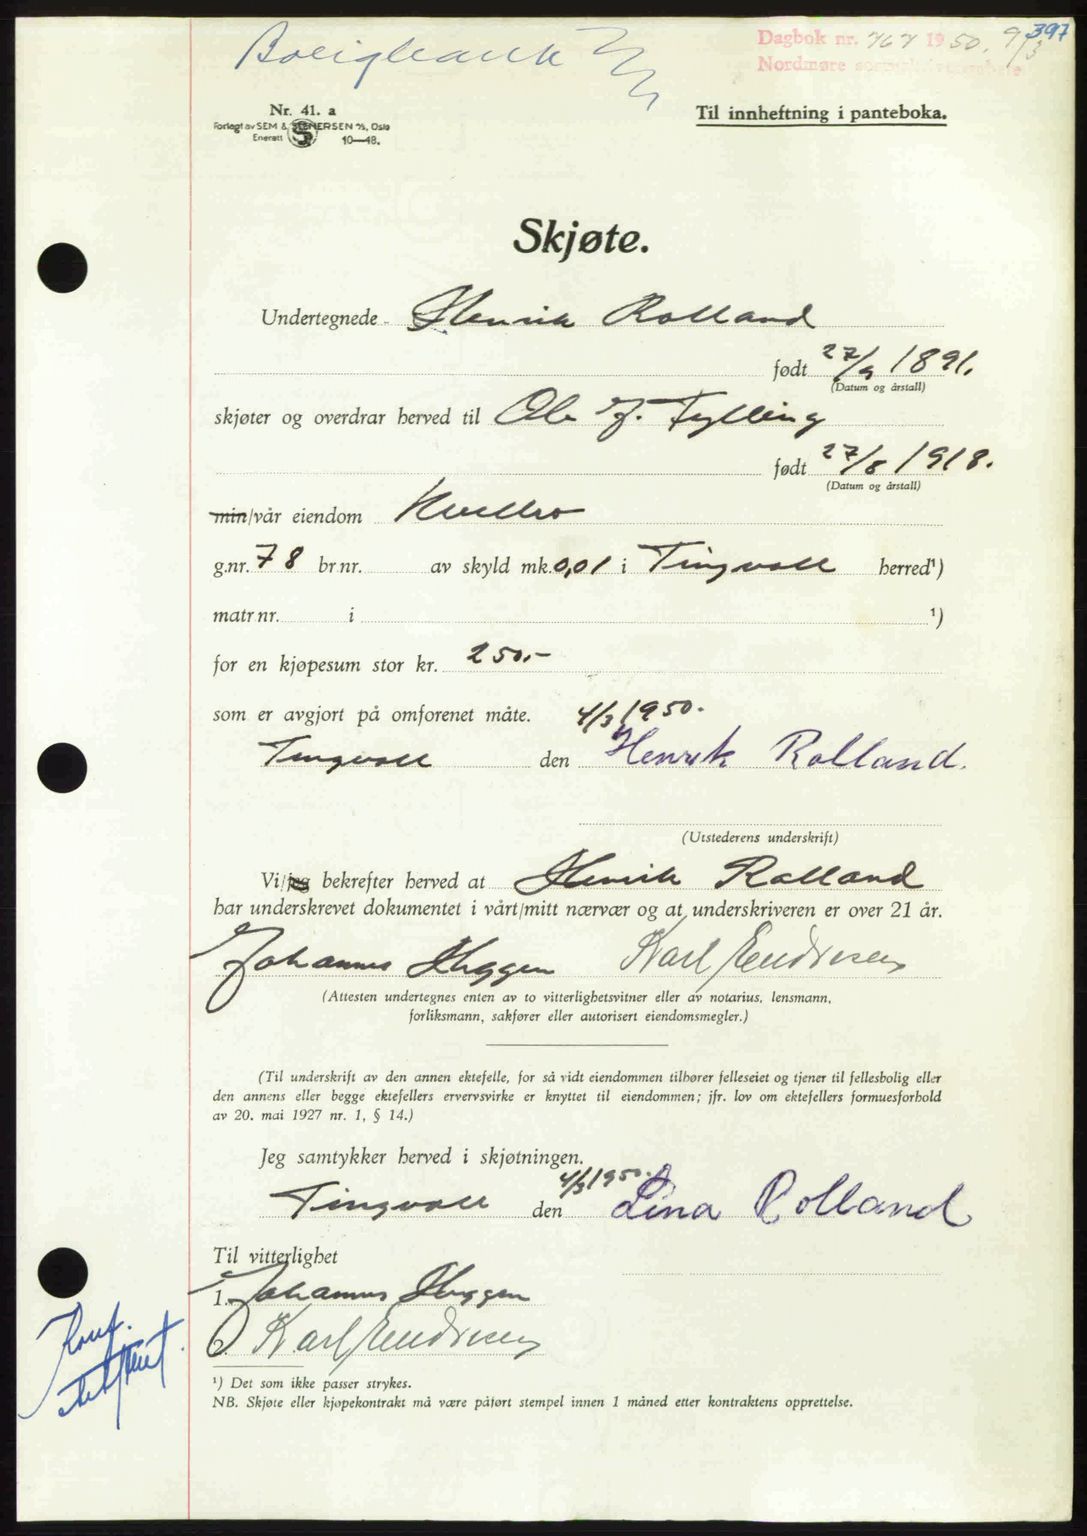 397
Dagbok nr. 767 1950. 9/3
Nordmøre
Boligbank
Nr. 41. a
Forlagt av SEM & STENERSEN A/S, Oslo
Enerett 10—48.
Til innheftning i panteboka.
Skjøte.
Undertegnede Henrik Rolland
født 27/9 1891.
(Datum og årstall)
skjøter og overdrar herved til Ole J. Fylling
født 27/8 1918.
(Datum og årstall)
min/vår eiendom
g.nr. 78 br.nr. av skyld mk. 0,01 i Tingvoll herred¹)
matr.nr. i ¹)
for en kjøpesum stor kr. 250.-
som er avgjort på omforenet måte. 4/3 1950.
Tingvoll den Henrik Rolland.
(Utstederens underskrift)
Vi/jeg bekrefter herved at Henrik Rolland
har underskrevet dokumentet i vårt/mitt nærvær og at underskriveren er over 21 år.
Johannes Huggen Karl Endresen
(Attesten undertegnes enten av to vitterlighetsvitner eller av notarius, lensmann,
forliksmann, sakfører eller autorisert eiendomsmegler.)
(Til underskrift av den annen ektefelle, for så vidt eiendommen tilhører felleseiet og tjener til fellesbolig eller
den annens eller begge ektefellers ervervsvirke er knyttet til eiendommen; jfr. lov om ektefellers formuesforhold
av 20. mai 1927 nr. 1, § 14.)
Jeg samtykker herved i skjøtningen.
4/3 1950.
Tingvoll den Lina Rolland
Til vitterlighet
1. Johannes Huggen
2. Karl Endresen
Konf.
¹) Det som ikke passer strykes.
NB. Skjøte eller kjøpekontrakt må være påført stempel innen 1 måned etter kontraktens opprettelse.